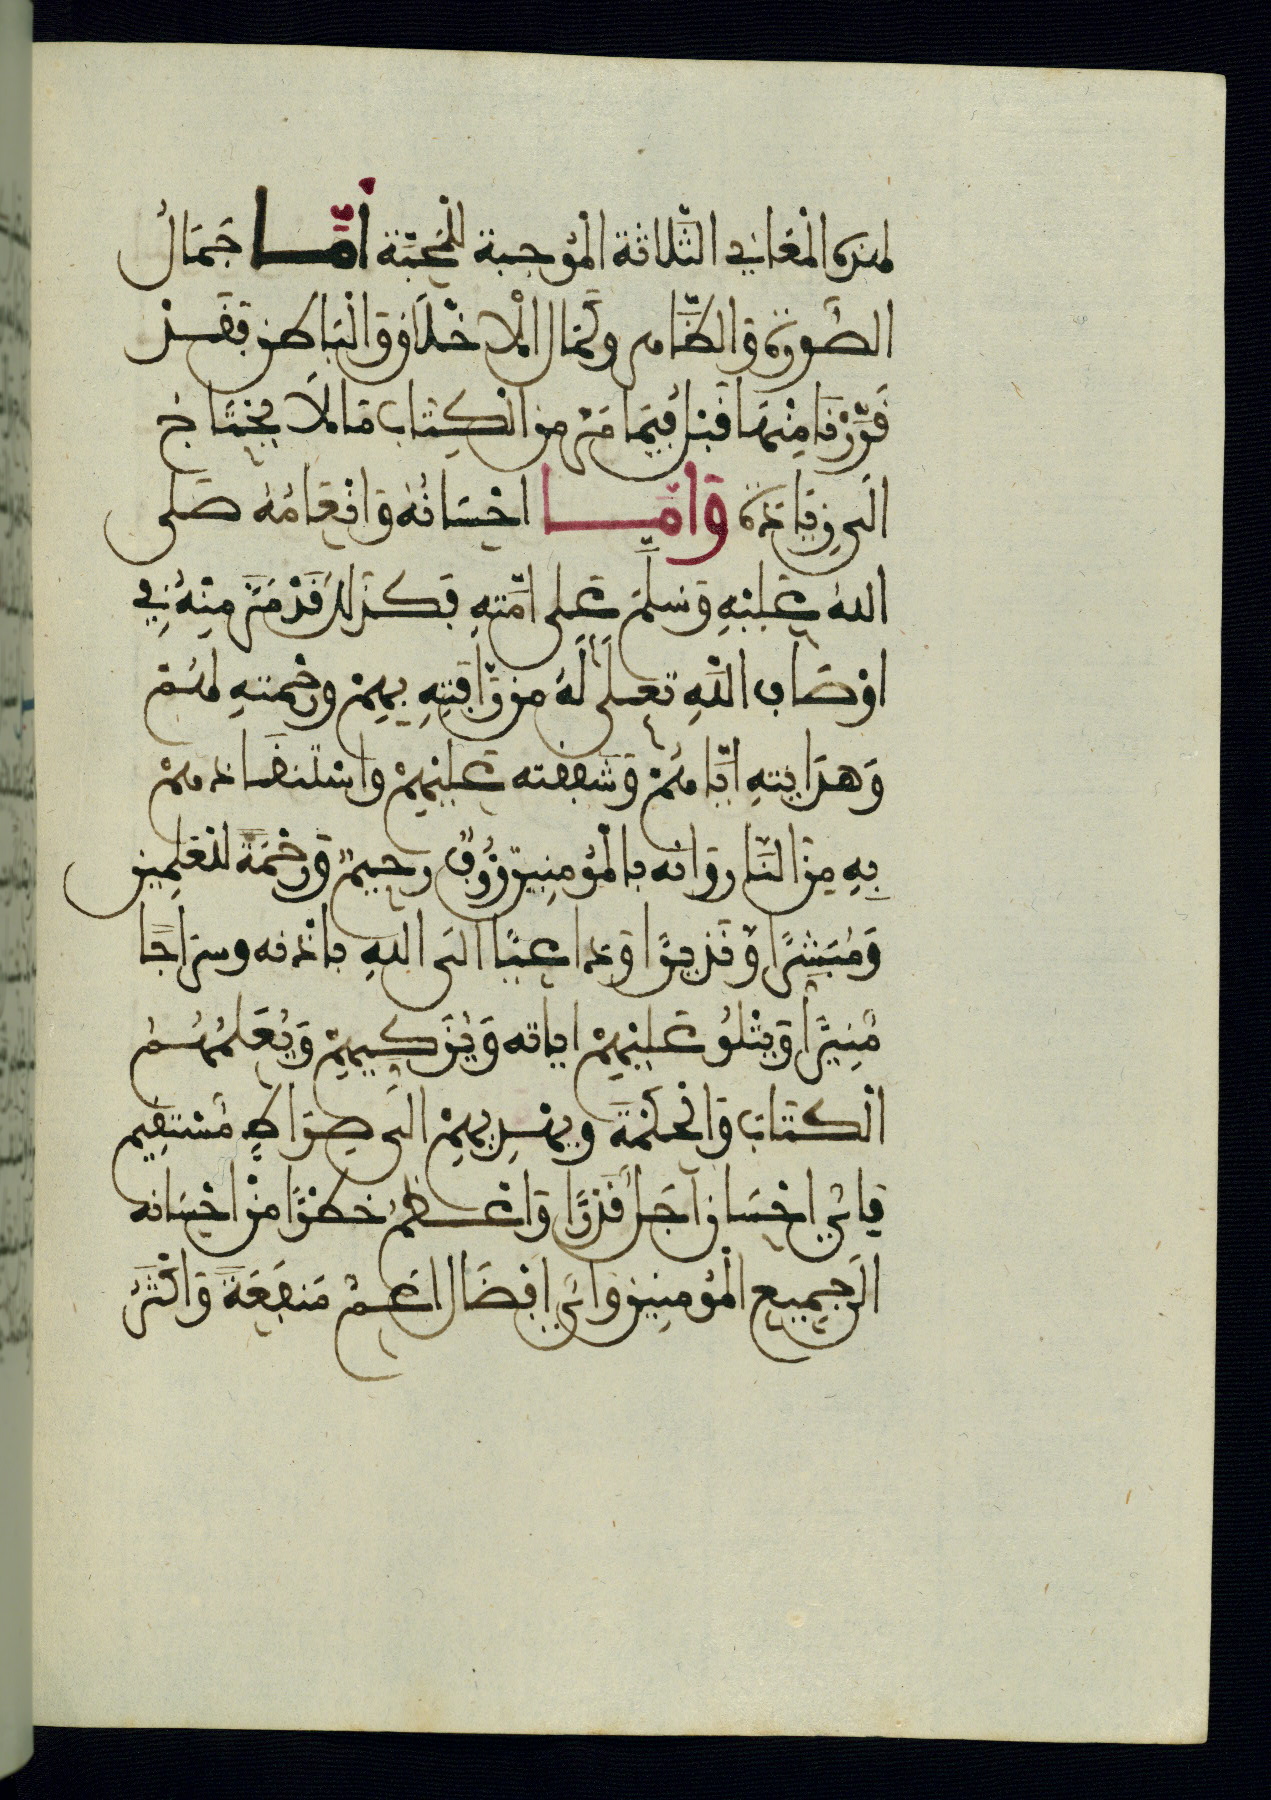 لهذه المعاني الثلاثة الموجبة للمحبّة أمّا جَمَالُ
الصُّورة والظّاهر وكَمَال الاخْلاق والبَاطن فقَدْ
قَرَّرْنَا مِنْهَا قَبْل فِيمَا مَرّ من الكِتَاب مَا لا يحْتَاجُ
الَى زيادة وَامَّا احْسَانُهُ وَانْعَامُهُ صَلى
اللهُ عَلَيْهِ وَسَلم عَلى امّتهِ فكذَلك قَدْ مَرّ مِنْهُ فِي
اوْصَاف اللَّهِ تعلى لَهُ من رَّافَتِهِ بِهِمْ ورحْمتهِ لهُمْ
وَهدَايتهِ ايّاهُمْ وَشففته عَليْهِمْ واسْتنفاذهمْ
بِهِ مِنَ النَّار وانه بالْمُؤمنِين رَؤُفٌ رحيمٌ وَرَحْمَةً للْعَلمِين
وَمُبَشّرًا وَنَذيرًا وَدَاعيًا الَى اللهِ باذْنه وسرَاجًا
مُنِيرًا وَيتْلُو عَليْهِمْ اياته وَيُزَكيهِمْ وَيُعَلمُهُمُ
الْكتَابَ وَالحكْمَةَ ويهْدِيهِمْ الَى صِرَاطٍ مُسْتقِيم
فَاي احْسَان اجَلُّ قَدْرًا وَاعْظَمُ خَطَرًا منْ احْسَانه
الَى جمِيع الْمُؤمنِين وَايّ افْضَال اعَمّ مَنفَعَةً وَاكْثرُ